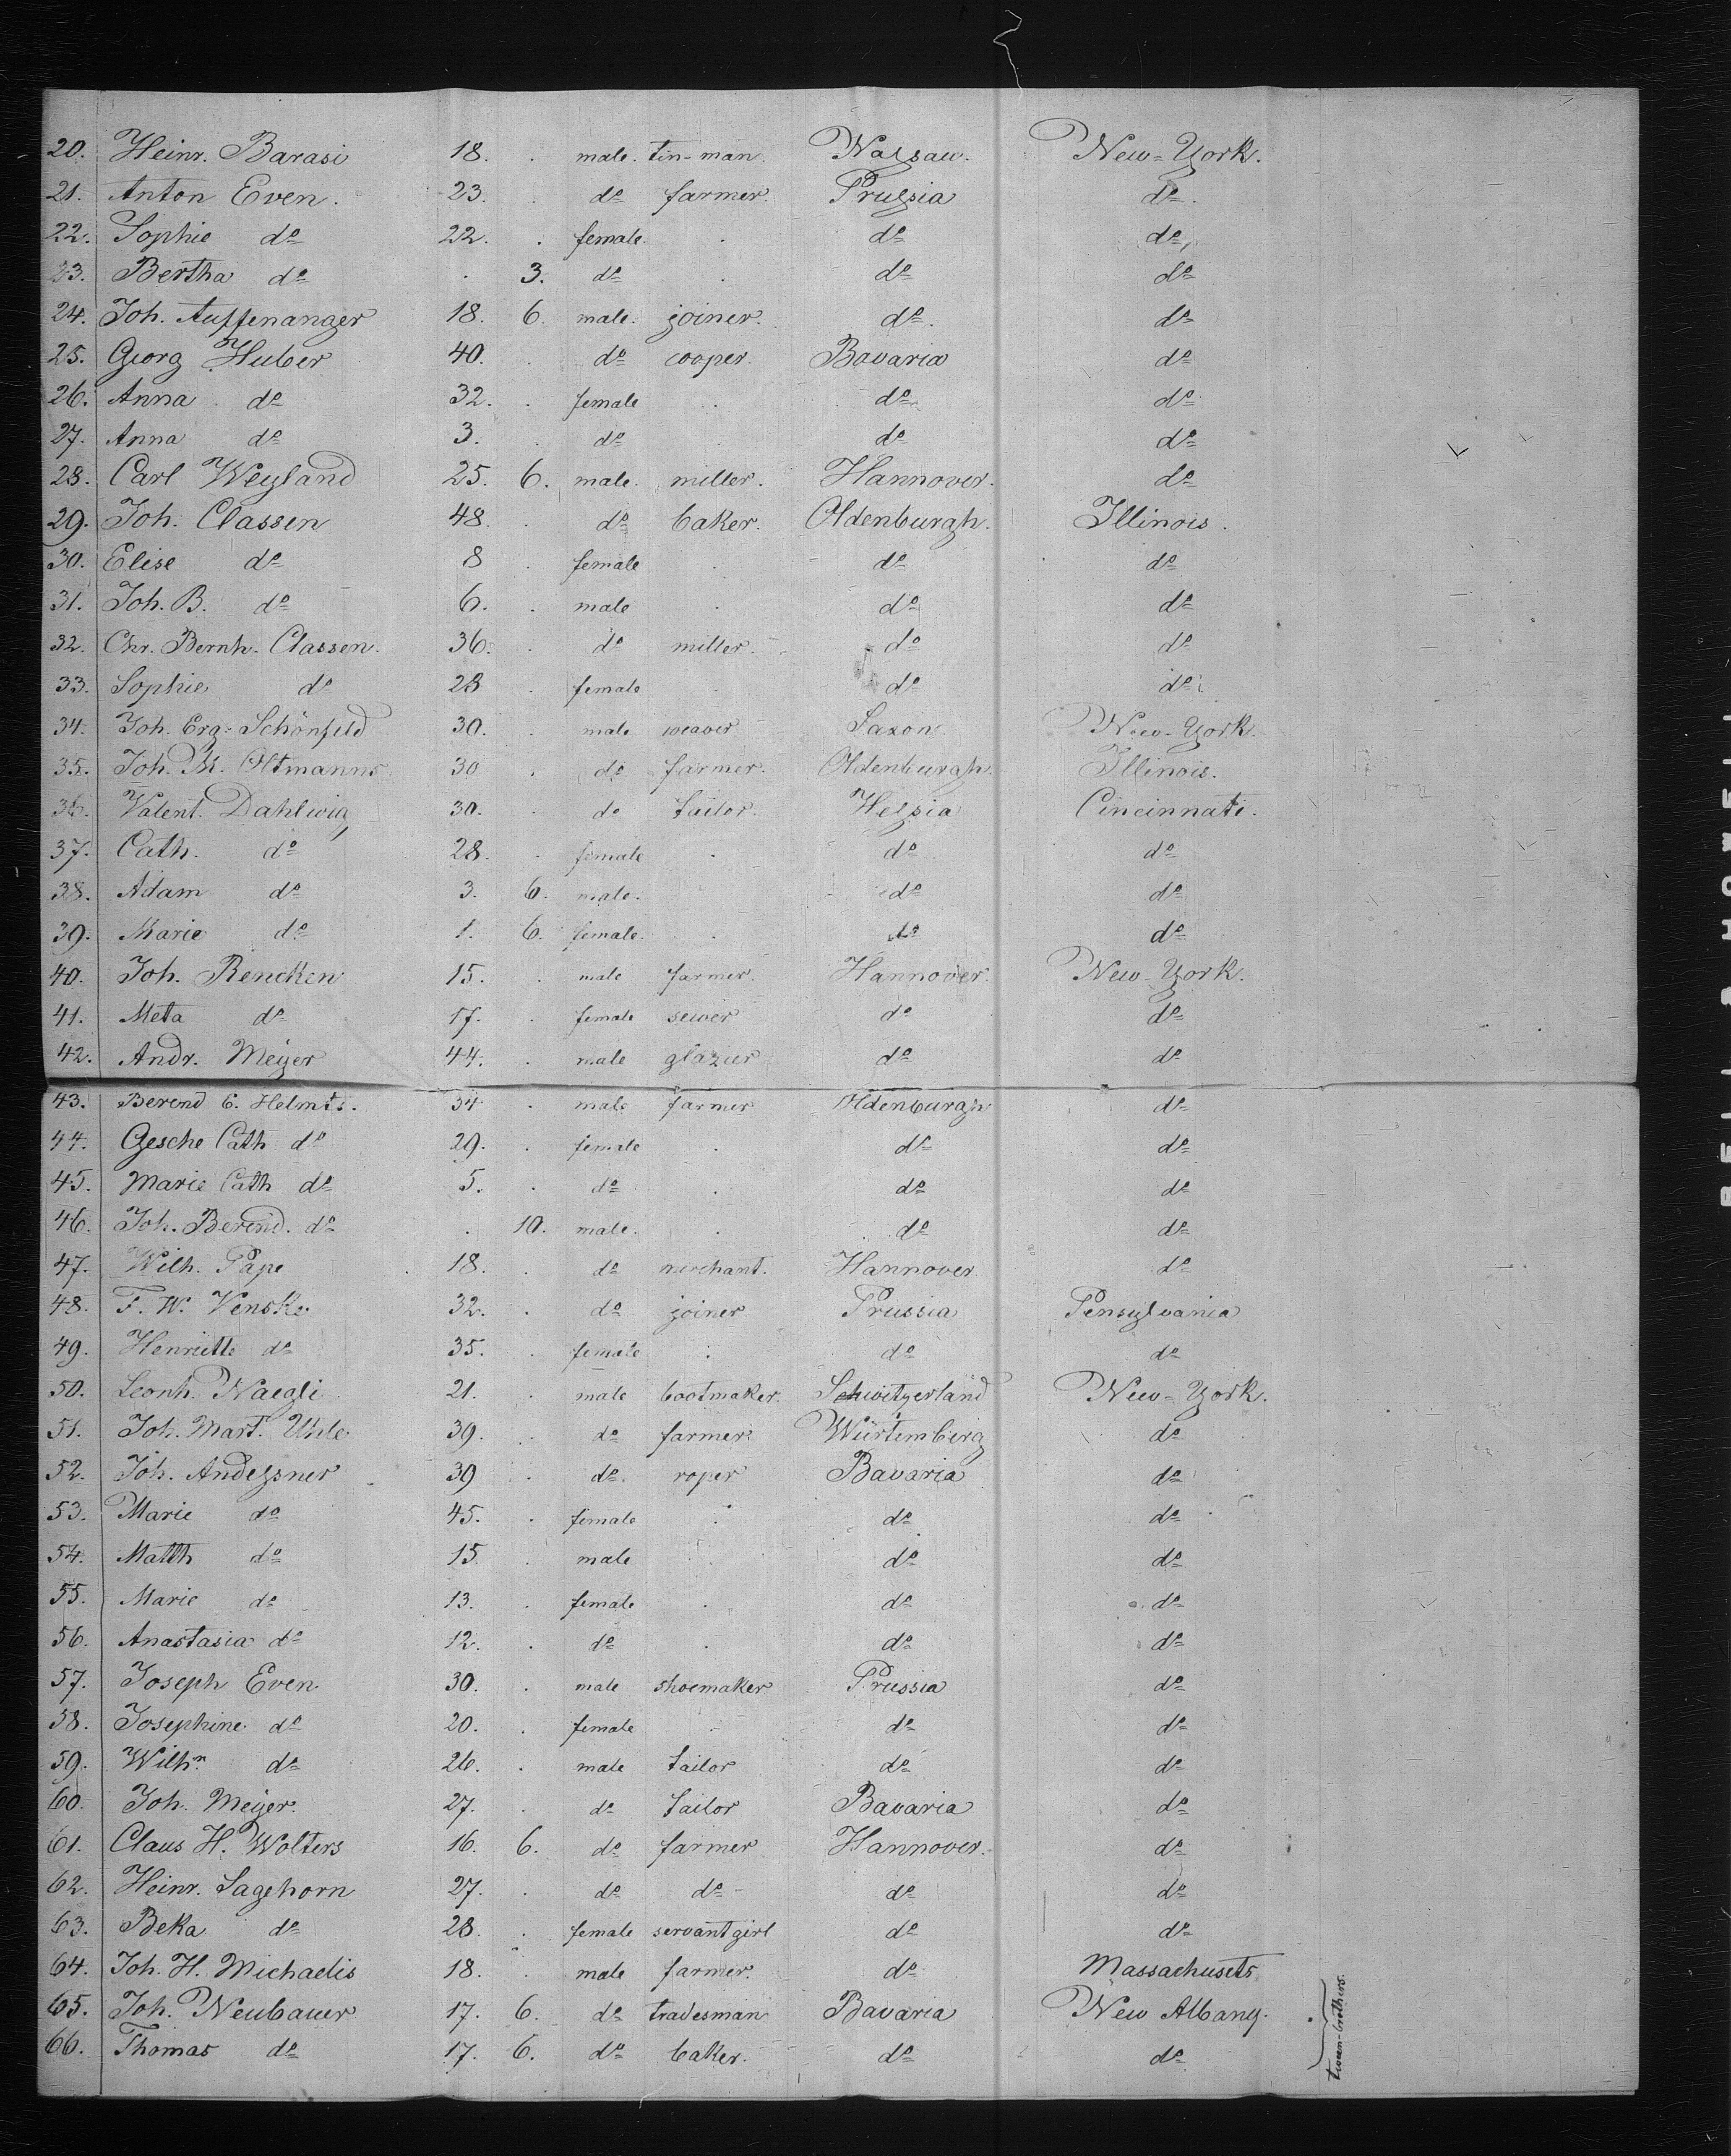 20. Heinr. Barasi 18. . male. tin-man. Nassau. New-York.
21. Anton Even. 23. . do farmer. Prussia do.
22. Sophie do 22. . female. . do do,
23. Bertha do . 3. do . do do
24. Joh. Auffenanger 18. 6. male. joiner. do. do
25. Georg Huber 40. . do cooper. Bavaria do
26. Anna do 32. . female . do. do
27. Anna do 3. . do . do do
28. Carl Weyland 25. 6. male. miller. Hannover. do
29. Joh. Classen 48. . do baker. Oldenburgh. Illinois.
30. Elise do 8 . female . do do
31. Joh. B. do 6. . male . do do
32. Chr. Bernh. Classen. 36. . do miller. do do
33. Sophie do 28 . female . do do
34. Joh. Erg. Schönfeld 30. . male weaver Saxon New-York.
35. Joh. M. Oltmanns 30 . do farmer. Oldenburgh. Illinois.
36. Valent. Dahlwig 30. . do tailor. Hessia Cincinnati.
37. Cath. do 28. . female . do do
38. Adam do 3. 6. male. do do
39. Marie do 1. 6. female. . do do
40. Joh. Rencken 15. . male farmer. Hannover. New-York.
41. Meta do 17. . female sewer do do
42. Andr. Meyer 44. . male glazier do do
43. Berend E. Helmts. 34 . male farmer Oldenburgh do
44. Gesche Cath do 29. . female . do do
45. Marie Cath do 5. . do . do do
46. Joh. Berend. do . 10. male. . do do
47. Wilh. Pape 18. . do merchant. Hannover do
48. F. W. Venske. 32. . do joiner Prussia Pensylvania
49. Henriette do 35. . female . do do
50. Leonh. Naegli 21. . male bootmaker. Schwitzerland New-York.
51. Joh. Mart. Uhle. 39. . do farmer. Würtemberg do
52. Joh. Andessner 39 . do. roper Bavaria do
53. Marie do 45. . female . do do
54. Matth do 15. . male do do
55. Marie do 13. . female . do do
56. Anastasia do 12. . do . do do
57. Joseph Even 30. . male shoemaker Prussia do
58. Josephine do 20. . female . do do
59. Wilhm do 26. . male tailor do do
60. Joh. Meyer. 27. . do tailor Bavaria do
61. Claus H. Wolters 16. 6. do farmer Hannover. do
62. Heinr. Sagehorn 27. . do do do do
63. Beka do 28. . female servant girl do do
64. Joh. H. Michaelis 18. . male farmer. do Massachusets
65. Joh. Neubauer 17. 6. do tradesman Bavaria New Albany.
66. Thomas do 17. 6. do baker. do do
tween-brothers.